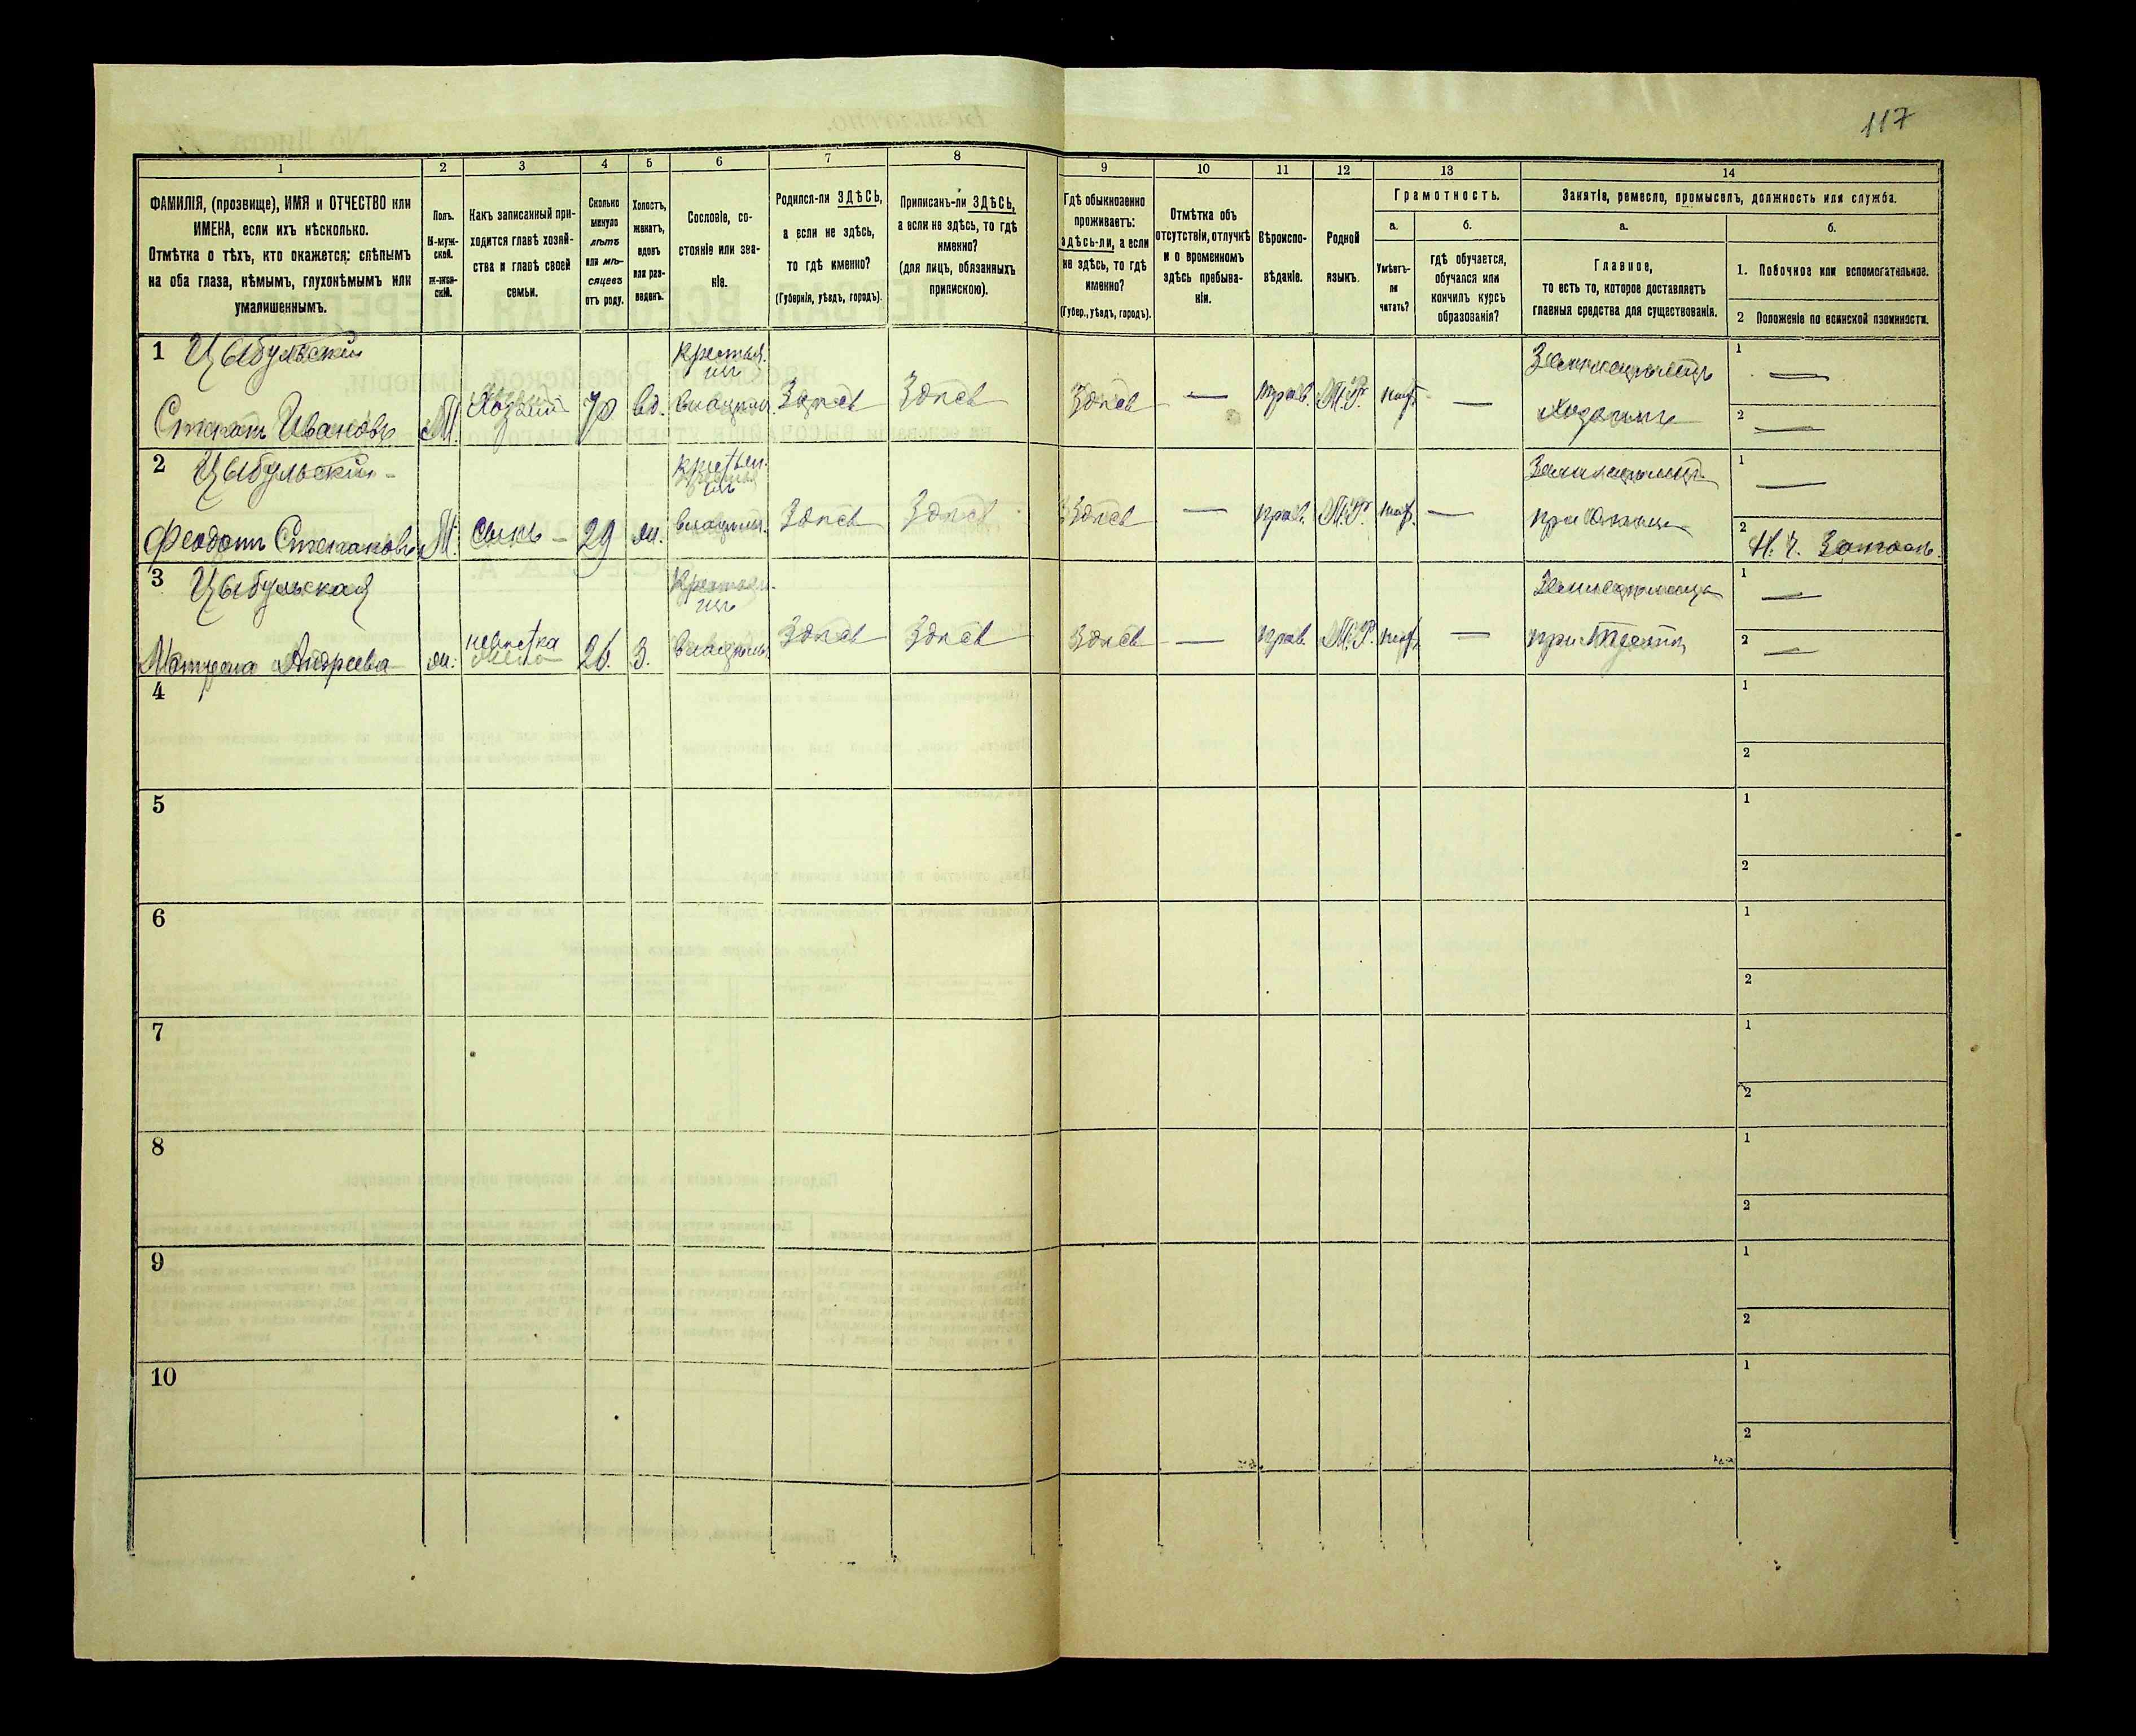 117
1 2 3 4 5 6 7 8 9 10 11 12 13 14
ФАМИЛІЯ, (прозвище), ИМЯ и ОТЧЕСТВО или
ИМЕНА, если ихъ нѣсколько.
Отмѣтка о тѣхъ, кто окажется: слѣпымъ
на оба глаза, нѣмымъ, глухонѣмымъ или
умалишеннымъ.
Полъ.
М-муж-
ской.
Ж-жен-
скій.
Какъ записанный при-
ходится главѣ хозяй-
ства и главѣ своей
семьи.
Сколько
минуло
лѣтъ
или мѣ-
сяцевъ
отъ роду.
Холостъ,
женатъ,
вдовъ
или раз-
веденъ.
Сословіе, со-
стояніе или зва-
ніе.
Родился-ли ЗДѢСЬ,
а если не здѣсь,
то гдѣ именно?
(Губернія, уѣздъ, городъ).
Приписанъ-ли ЗДѢСЬ,
а если не здѣсь, то гдѣ
именно?
(для лицъ, обязанныхъ
припискою).
Гдѣ обыкновенно
проживаетъ:
здѣсь-ли, а если
не здѣсь, то гдѣ
именно?
(Губер., уѣздъ, городъ).
Отмѣтка объ
отсутствіи, отлучкѣ
и о временномъ
здѣсь пребыва-
ніи.
Вѣроиспо-
вѣданіе.
Родной
языкъ.
Грамотность.
а.
Умѣетъ-
ли
читать?
б.
гдѣ обучается,
обучался или
кончилъ курсъ
образованія?
Занятіе, ремесло, промыселъ, должность или служба.
а.
Главное,
то есть то, которое доставляетъ
главныя средства для существованія.
б.
1. Побочное или вспомогательное.
2 Положеніе по воинской повинности.
1 Цыбульскій Крестья. Земледѣлецъ 1 —
нъ
Степанъ Ивановъ М. Хозяинъ 70 вд. владѣльч. Здѣсь Здѣсь Здѣсь — прав. М.Р. нѣт. — Хозяинъ 2 —
2 Цыбульскій Крестьян. Земледѣлецъ 1 —
Феодотъ Степановъ М. Сынъ 29 ж. владѣльч. Здѣсь Здѣсь Здѣсь — прав. М.Р. нѣт. — при Отцѣ 2 Н. Ч. Запаса.
3 Цыбульская Крестьян. 1 —
Матрена Андреева ж. невѣстка 26. З. владѣльч. Здѣсь Здѣсь Здѣсь — прав. М.Р. нѣт. — при 2 —
4 1
2
5 1
2
6 1
2
7 1
2
8 1
2
9 1
2
10 1
2